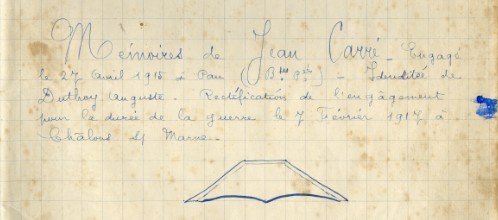 Mémoires de Jean Carré - Engagé
le 27 Avril 1915 à Pau (Bses Pées) - Identité de
Duthoy Auguste. Rectification de l'engagement
pour la durée de la guerre le 7 Février 1917 à
Châlons s/ Marne.-